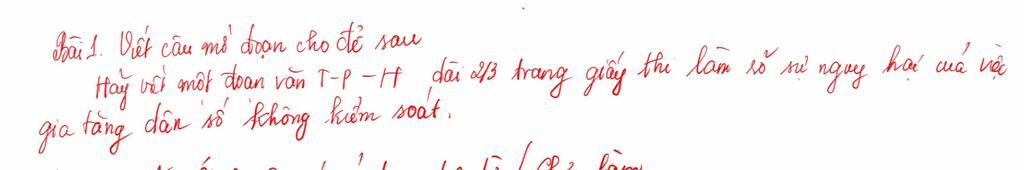 Bài 1. Viết câu mở đoạn cho đề sau
Hãy viết một đoạn văn T-P-H dài 2/3 trang giấy thi làm rõ sự nguy hại của việc
gia tăng dân số không kiểm soát.